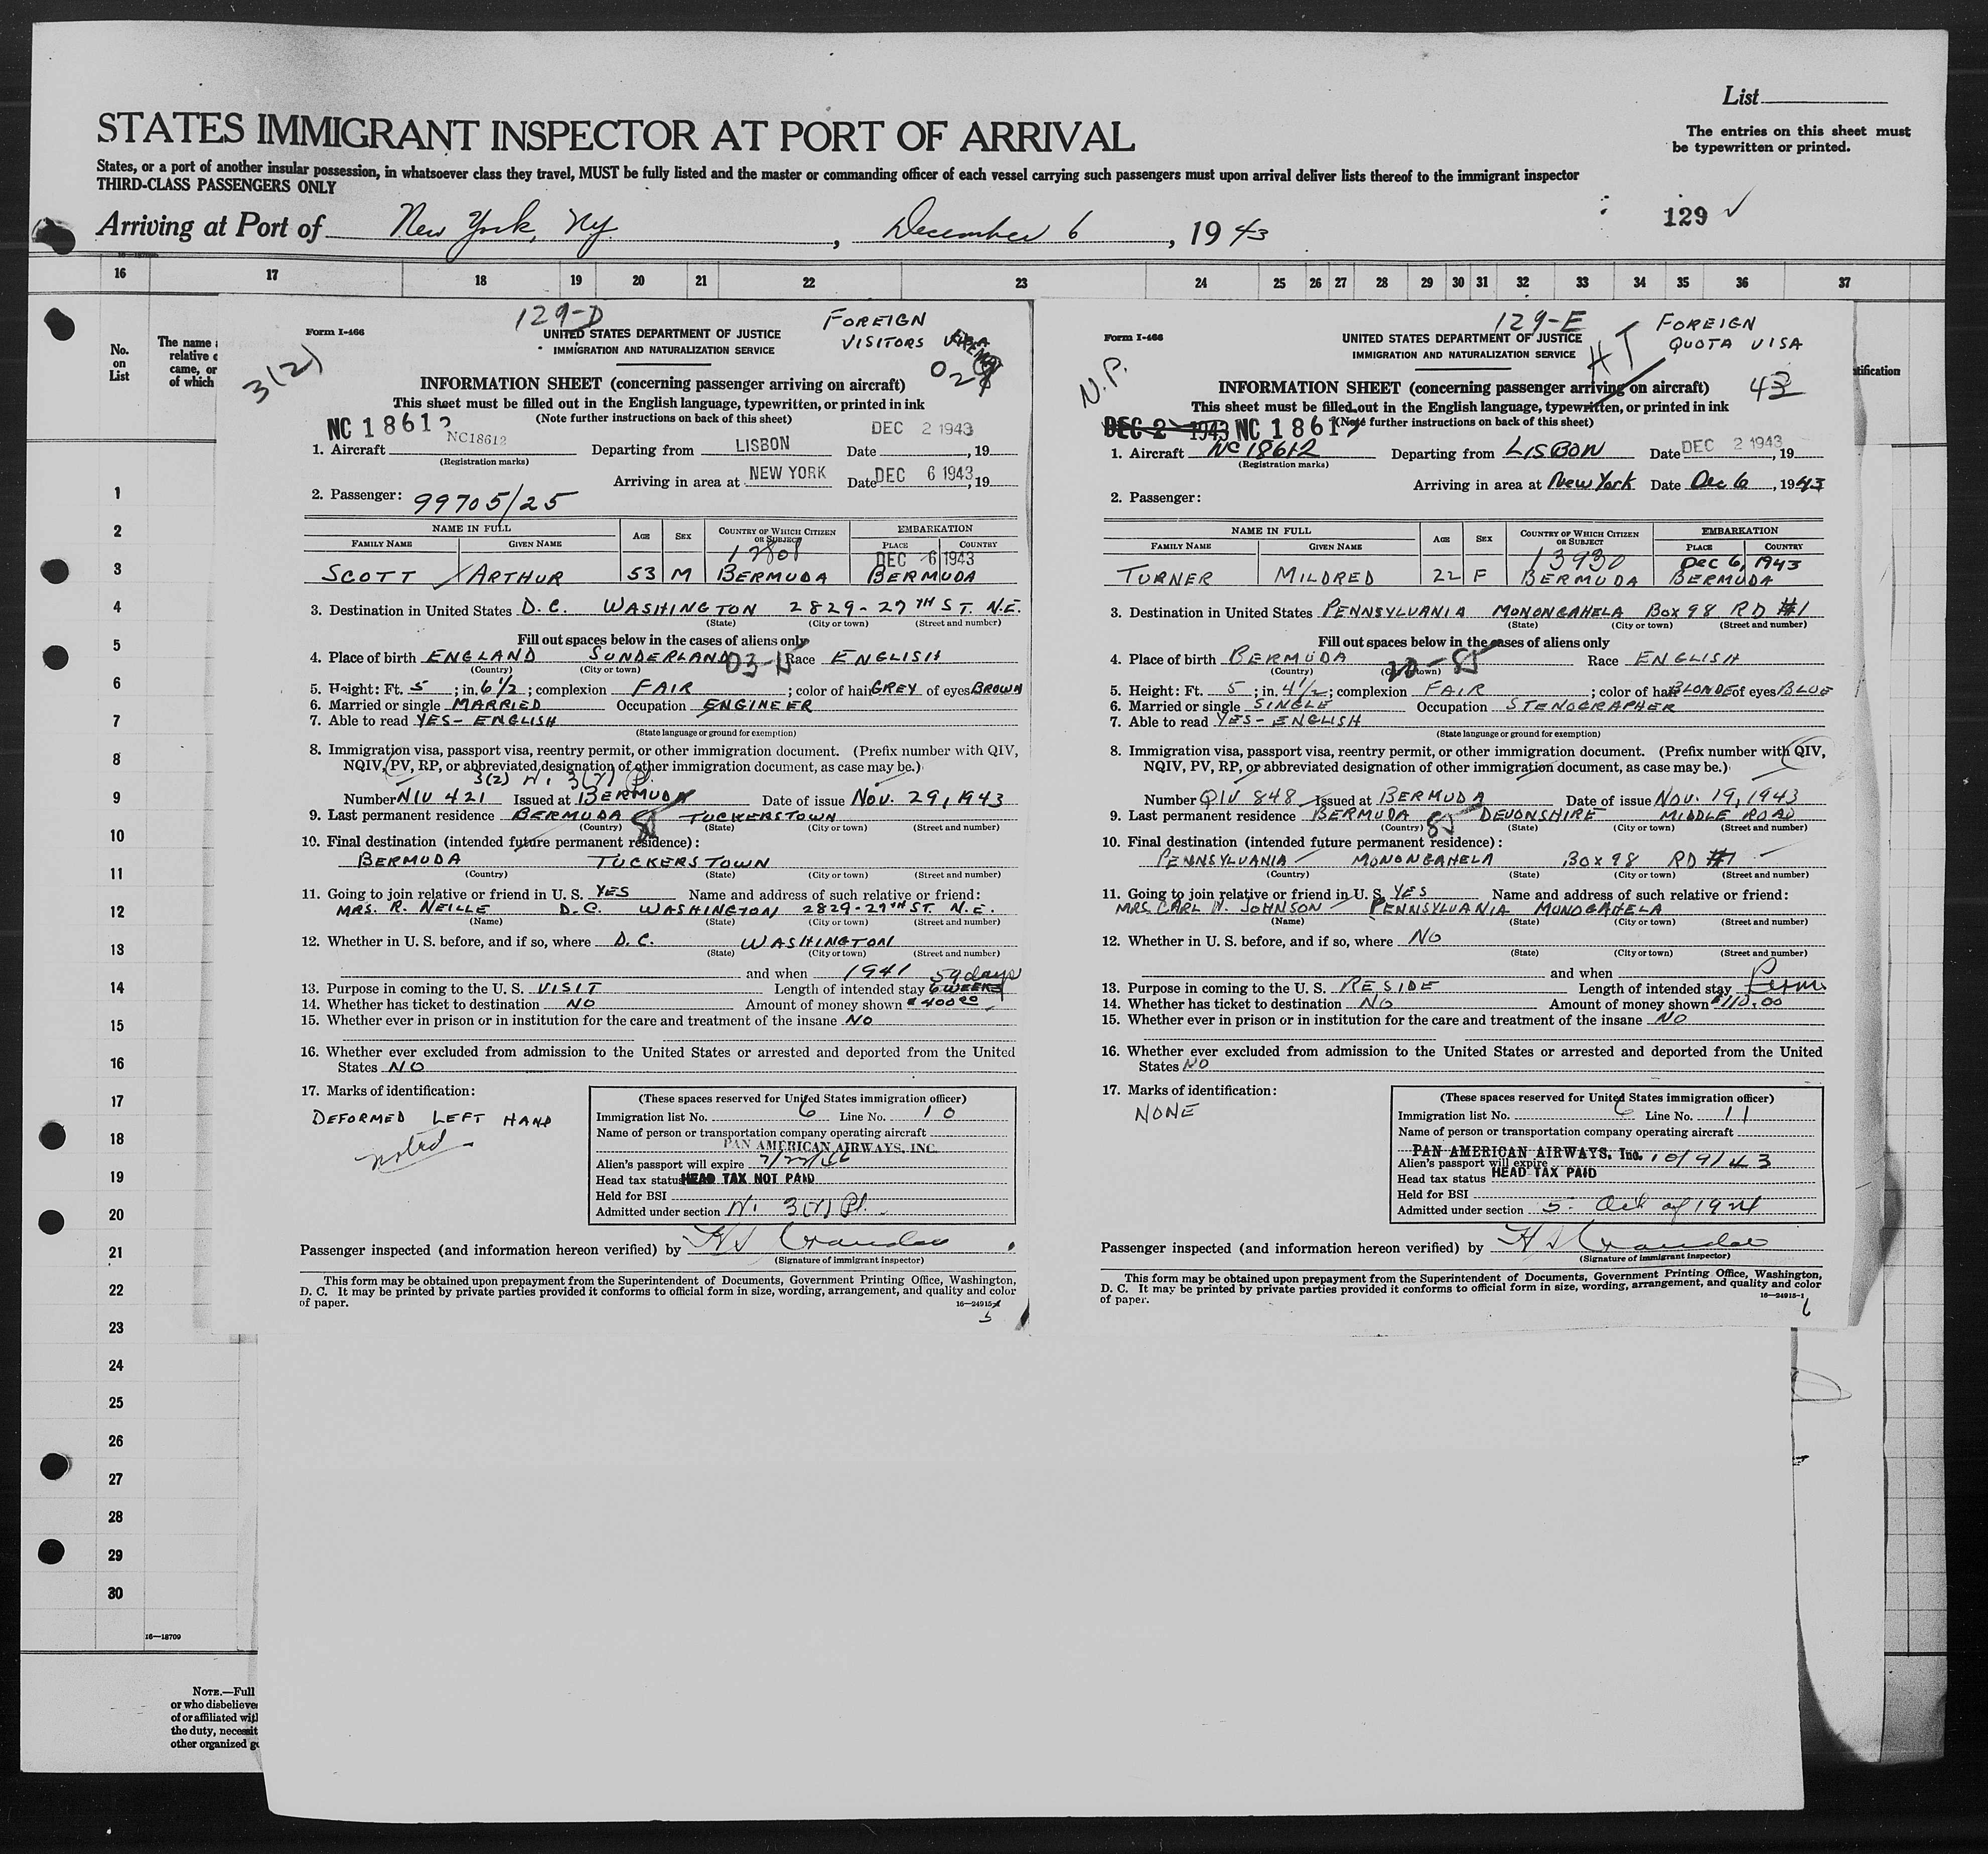 List
STATES IMMIGRANT INSPECTOR AT PORT OF ARRIVAL
The entries on this sheet must
be typewritten or printed.
States, or a port of another insular possession, in whatsoever class they travel, MUST be fully listed and the master or commanding officer of each vessel carrying such passengers must upon arrival deliver lists thereof to the immigrant inspector
THIRD-CLASS PASSENGERS ONLY
Arriving at Port of New York, Ny , December 6 , 1943
129 ✓
16 17 18 19 20 21 22 23 24 25 26 27 28 29 30 31 32 33 34 35 36 37
No.
on
List
The name
relative
came, or
of which
1
2
3
4
5
6
7
8
9
10
11
12
13
14
15
16
17
18
19
20
21
22
23
24
25
26
27
28
29
30
16—18709
NOTE.—Full
or who disbelieve
of or affiliated wit
the duty, necessit
other organized g
129-D
FOREIGN
VISITORS
Form I-466
UNITED STATES DEPARTMENT OF JUSTICE
IMMIGRATION AND NATURALIZATION SERVICE
3(2)
INFORMATION SHEET (concerning passenger arriving on aircraft)
This sheet must be filled out in the English language, typewritten, or printed in ink
(Note further instructions on back of this sheet)
NC 18612
NC18612
DEC 2 1943
1. Aircraft Departing from LISBON Date , 19
(Registration marks)
Arriving in area at NEW YORK Date DEC 6 1943, 19
2. Passenger: 99705/25
NAME IN FULL AGE SEX COUNTRY OF WHICH CITIZEN OR SUBJECT EMBARKATION
FAMILY NAME GIVEN NAME PLACE COUNTRY
DEC 6 1943
SCOTT ARTHUR 53 M BERMUDA BERMUDA
3. Destination in United States D.C. WASHINGTON 2829-27TH ST. N.E.
(State) (City or town) (Street and number)
Fill out spaces below in the cases of aliens only
4. Place of birth ENGLAND SUNDERLAND Race ENGLISH
(Country) (City or town)
5. Height: Ft. 5 ; in. 6 1/2 ; complexion FAIR ; color of hair GREY of eyes BROWN
6. Married or single MARRIED Occupation ENGINEER
7. Able to read YES- ENGLISH
(State language or ground for exemption)
8. Immigration visa, passport visa, reentry permit, or other immigration document. (Prefix number with QIV,
NQIV, PV, RP, or abbreviated designation of other immigration document, as case may be.)
3(2)
Number NIV 421 Issued at BERMUDA Date of issue NOV. 29, 1943
9. Last permanent residence BERMUDA TUCKERSTOWN
(Country) (State) (City or town) (Street and number)
10. Final destination (intended future permanent residence):
BERMUDA TUCKERSTOWN
(Country) (State) (City or town) (Street and number)
11. Going to join relative or friend in U. S. YES Name and address of such relative or friend:
MRS. R. NEILLE D.C. WASHINGTON 2829-27TH ST. N.E.
(Name) (State) (City or town) (Street and number)
12. Whether in U. S. before, and if so, where D.C. WASHINGTON
(State) (City or town) (Street and number)
and when 1941 59 days
13. Purpose in coming to the U. S. VISIT Length of intended stay 6 WEEKS
14. Whether has ticket to destination NO Amount of money shown $400.00
15. Whether ever in prison or in institution for the care and treatment of the insane NO
16. Whether ever excluded from admission to the United States or arrested and deported from the United
States NO
17. Marks of identification:
DEFORMED LEFT HAND
noted
(These spaces reserved for United States immigration officer)
Immigration list No. 6 Line No. 10
Name of person or transportation company operating aircraft
PAN AMERICAN AIRWAYS, INC.
Alien's passport will expire
Head tax status HEAD TAX NOT PAID
Held for BSI
Admitted under section
Passenger inspected (and information hereon verified) by
(Signature of immigrant inspector)
This form may be obtained upon prepayment from the Superintendent of Documents, Government Printing Office, Washington,
D. C. It may be printed by private parties provided it conforms to official form in size, wording, arrangement, and quality and color
of paper.
16—24915-1
5
129-E
FOREIGN
QUOTA VISA
HT
N.P.
Form I-466
UNITED STATES DEPARTMENT OF JUSTICE
IMMIGRATION AND NATURALIZATION SERVICE
INFORMATION SHEET (concerning passenger arriving on aircraft)
This sheet must be filled out in the English language, typewritten, or printed in ink
(Note further instructions on back of this sheet)
DEC 2 1943 NC 18612
DEC 2 1943
1. Aircraft NC 18612 Departing from LISBON Date , 19
(Registration marks)
Arriving in area at New York Date Dec 6 , 1943
2. Passenger:
NAME IN FULL AGE SEX COUNTRY OF WHICH CITIZEN OR SUBJECT EMBARKATION
FAMILY NAME GIVEN NAME PLACE COUNTRY
13930 Dec 6, 1943
TURNER MILDRED 22 F BERMUDA BERMUDA
3. Destination in United States PENNSYLVANIA MONONGAHELA BOX 98 RD #1
(State) (City or town) (Street and number)
Fill out spaces below in the cases of aliens only
4. Place of birth BERMUDA Race ENGLISH
(Country) (City or town)
5. Height: Ft. 5 ; in. 4 1/2 ; complexion FAIR ; color of hair BLONDE of eyes BLUE
6. Married or single SINGLE Occupation STENOGRAPHER
7. Able to read YES- ENGLISH
(State language or ground for exemption)
8. Immigration visa, passport visa, reentry permit, or other immigration document. (Prefix number with QIV,
NQIV, PV, RP, or abbreviated designation of other immigration document, as case may be.)
Number QIV 848 Issued at BERMUDA Date of issue NOV. 19, 1943
9. Last permanent residence BERMUDA DEVONSHIRE MIDDLE ROAD
(Country) (State) (City or town) (Street and number)
10. Final destination (intended future permanent residence):
PENNSYLVANIA MONONGAHELA BOX 98 RD #1
(Country) (State) (City or town) (Street and number)
11. Going to join relative or friend in U. S. YES Name and address of such relative or friend:
MRS CARL N. JOHNSON PENNSYLVANIA MONOGAHELA
(Name) (State) (City or town) (Street and number)
12. Whether in U. S. before, and if so, where NO
(State) (City or town) (Street and number)
and when
13. Purpose in coming to the U. S. RESIDE Length of intended stay Perm
14. Whether has ticket to destination NO Amount of money shown $110.00
15. Whether ever in prison or in institution for the care and treatment of the insane NO
16. Whether ever excluded from admission to the United States or arrested and deported from the United
States NO
17. Marks of identification:
NONE
(These spaces reserved for United States immigration officer)
Immigration list No. 6 Line No. 11
Name of person or transportation company operating aircraft
PAN AMERICAN AIRWAYS, Inc.
Alien's passport will expire 10/9/43
Head tax status HEAD TAX PAID
Held for BSI
Admitted under section 5- Act of 1924
Passenger inspected (and information hereon verified) by
(Signature of immigrant inspector)
This form may be obtained upon prepayment from the Superintendent of Documents, Government Printing Office, Washington,
D. C. It may be printed by private parties provided it conforms to official form in size, wording, arrangement, and quality and color
of paper.
16—24915-1
6